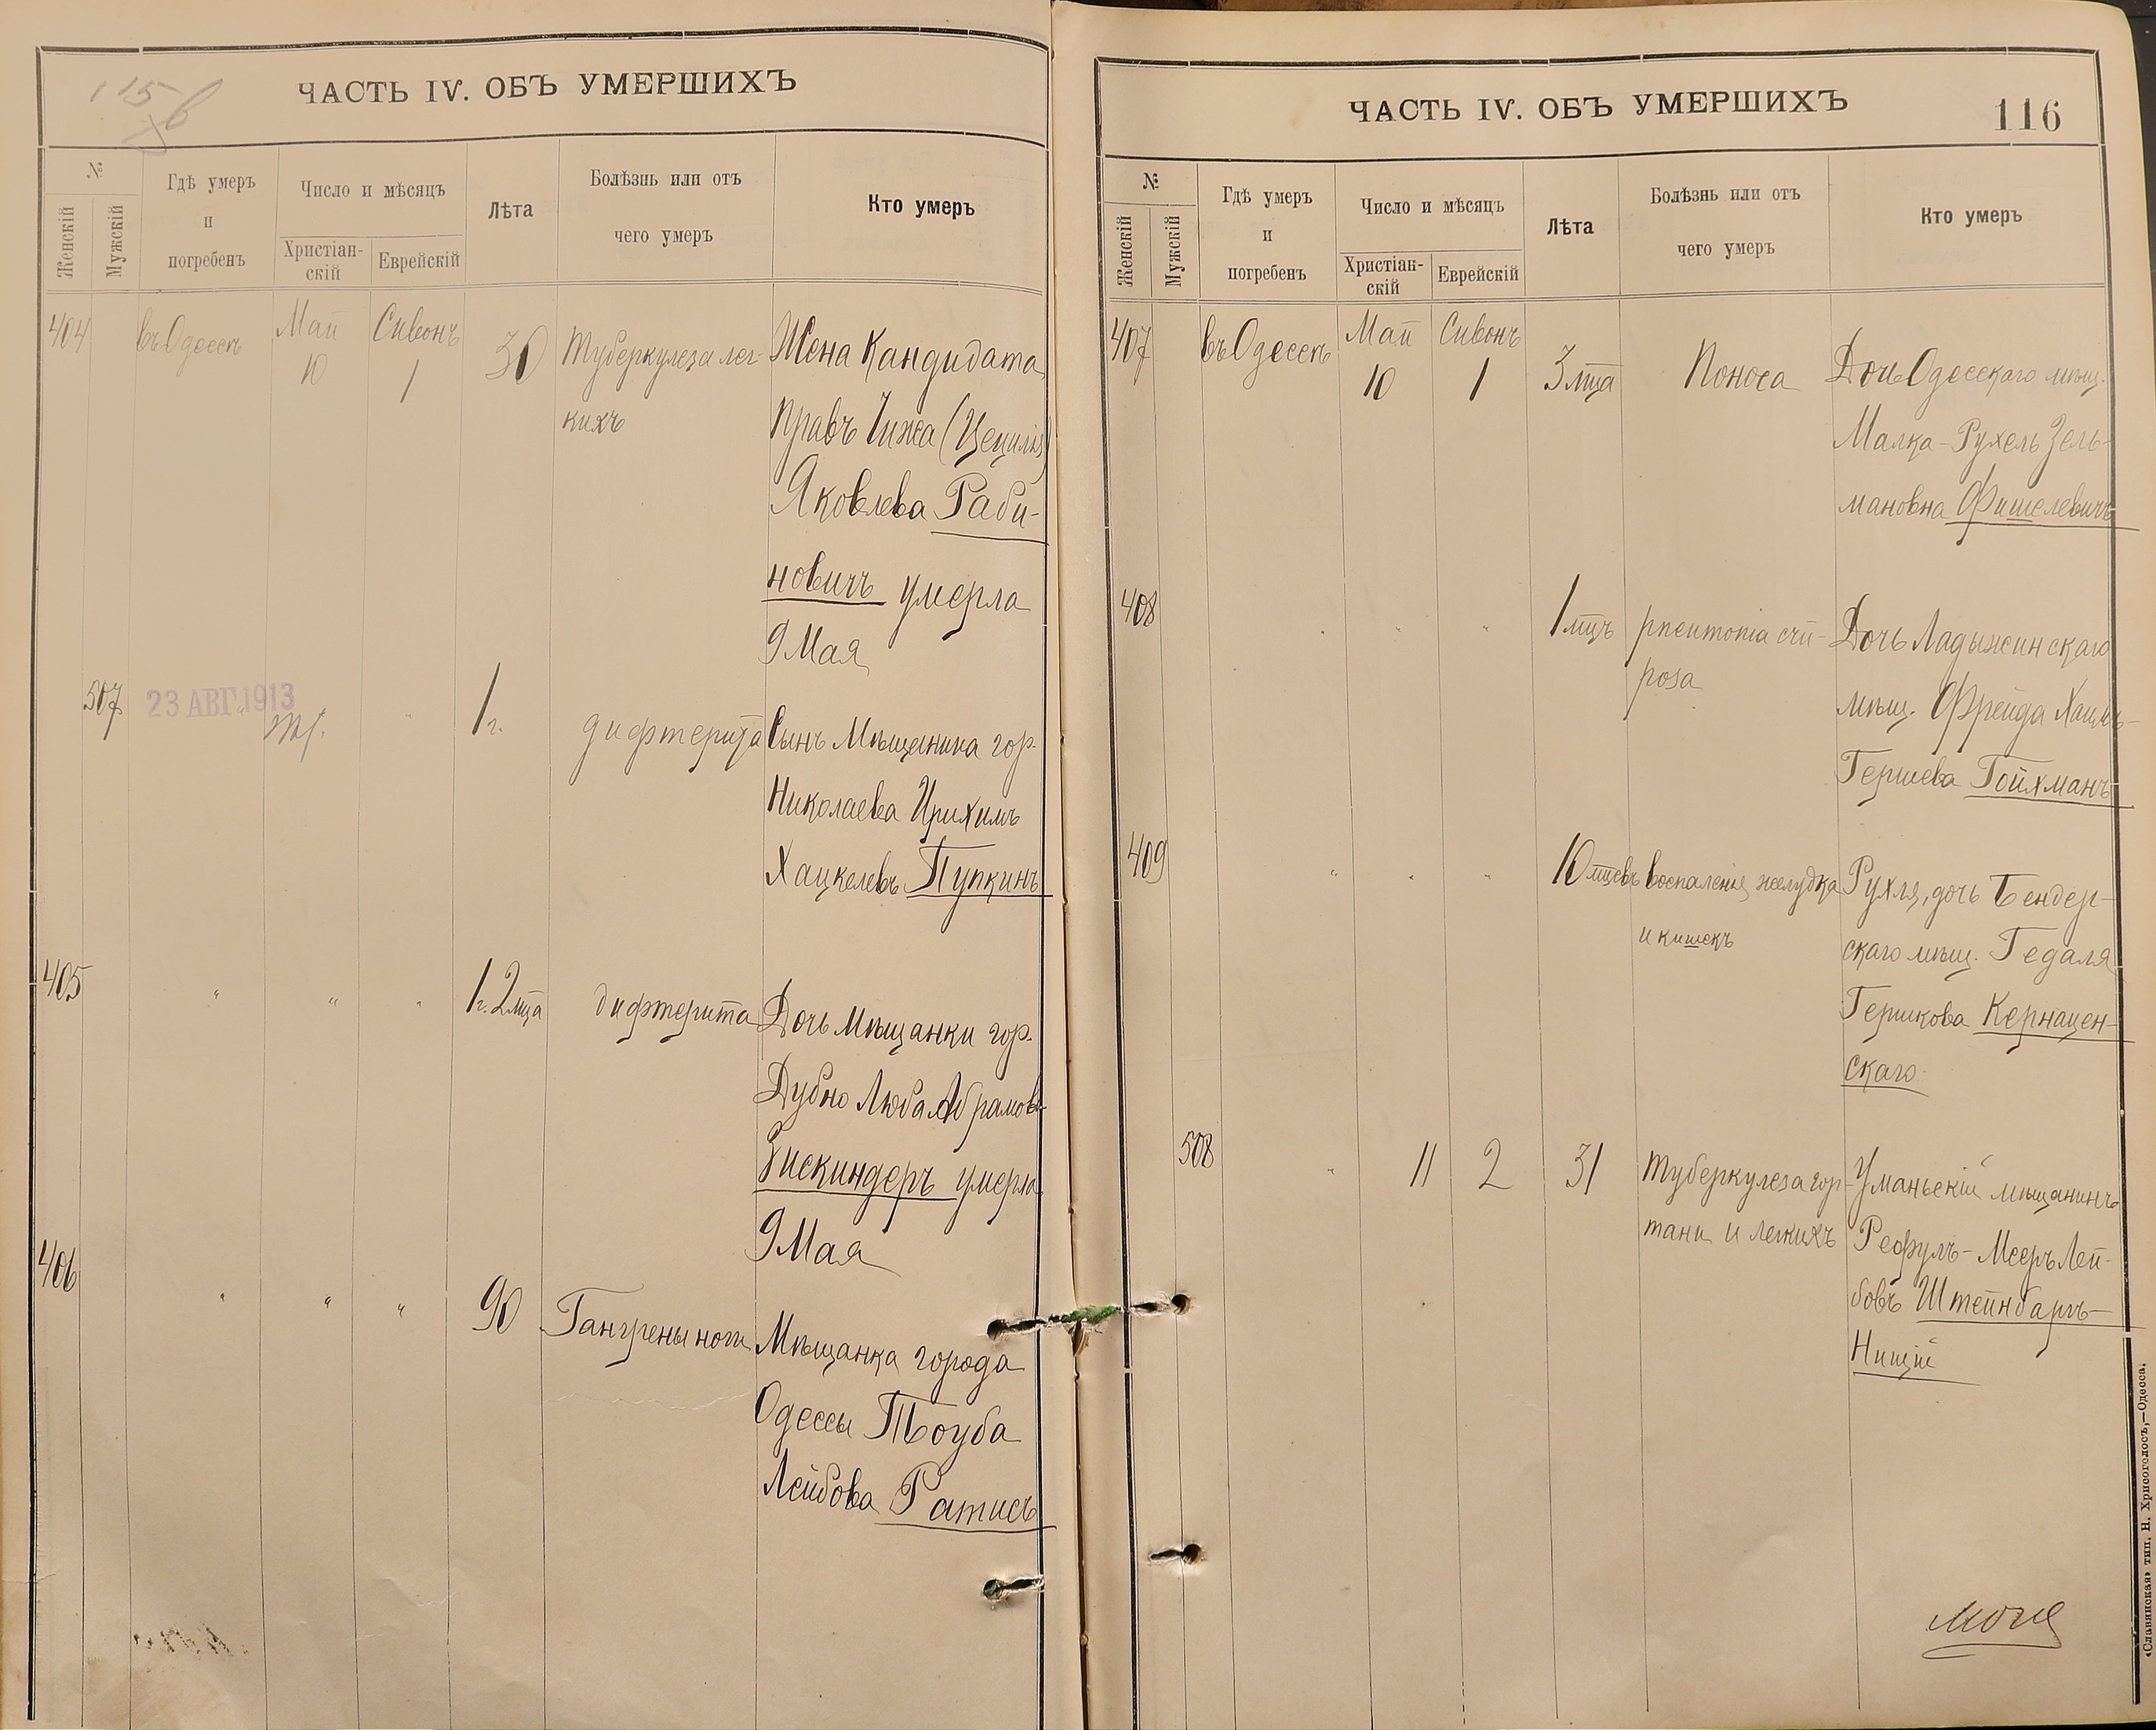 115
ЧАСТЬ IV. ОБЪ УМЕРШИХЪ
№
Женскій
Мужскій
Гдѣ умеръ
и
погребенъ
Число и мѣсяцъ
Христіан-
скій
Еврейскій
Лѣта
Болѣзнь или отъ
чего умеръ
Кто умеръ
404 въ Одессѣ Май 10 Сивонъ 1 30 Туберкулеза лег- Жена Кандидата
кихъ Правъ Чижа (Цецилія)
Яковлева Раби-
новичъ умерла
9 Мая
507 23 АВГ.1913 " 1 г. дифтерита Сынъ Мѣщанина гор.
Николаева Ирихимъ
Хацкелевъ Пупкинъ
405 " " " 1 г. 2 мца дифтерита Дочь Мѣщанки гор.
Дубно Люба Абрамов-
Зискиндеръ умерла
9 Мая
406 " " " 90 Гангрены ноги Мѣщанка города
Одессы Тоуба
Лейбова Ратисъ
ЧАСТЬ IV. ОБЪ УМЕРШИХЪ 116
№
Женскій
Мужскій
Гдѣ умеръ
и
погребенъ
Число и мѣсяцъ
Христіан-
скій
Еврейскій
Лѣта
Болѣзнь или отъ
чего умеръ
Кто умеръ
407 въ Одессѣ Май 10 Сивонъ 1 3 мца Поноса Дочь Одесскаго мѣщ.
Малка-Рухель Зель-
мановна Фишелевичъ
408 " " " 1 мцъ pneumonia Дочь Ладыжинскаго
posa мѣщ. Фрейда Хаимъ-
Гершева Гойхманъ
409 " " " 10 мцевъ воспаленія желудка Рухля, дочь Бендер-
и кишекъ скаго мѣщ. Гедаля
Гершкова Кернацен-
скаго
508 " 11 2 31 Туберкулеза гор- Уманьскій мѣщанинъ
тани и легкихъ Рефулъ-Мееръ Лей-
бовъ Штейнбаргъ-
Нищій
«Славянская» тип. Н. Хрисогелосъ,—Одесса.